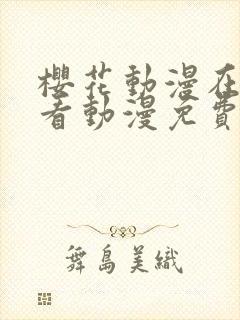 櫻花動漫在
看動漫免費
舞島美織